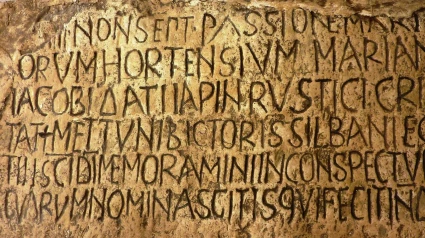 IIII NON SEPT PASSIONE MART
ORVM HORTENSIVM MARIAN
IACOBI DATI IAPIN RVSTICI CRI
TAT+METTVNI BICTORIS SILBANI E
TII SCI DI MEMORAMINI IN CONSPECTV
QVORVM NOMINA SCITIS QVI FECIT IND